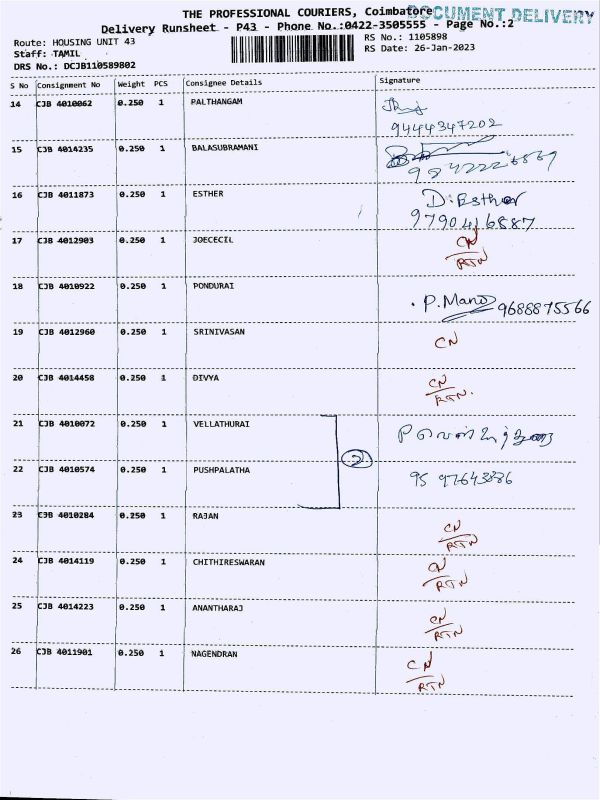 THE PROFESSIONAL COURIERS, Coimbatore
DOCUMENT DELIVERY
Delivery Runsheet - P43 - Phone No.:0422-3505555 - Page No.:2
Route: HOUSING UNIT 43
RS No.: 1105898
Staff: TAMIL
RS Date: 26-Jan-2023
DRS No.: DCJB110589802
S No Consignment No Weight PCS Consignee Details Signature
14 CJB 4010062 0.250 1 PALTHANGAM
9444347202
15 CJB 4014235 0.250 1 BALASUBRAMANI
16 CJB 4011873 0.250 1 ESTHER D.Esther
9790416887
17 CJB 4012903 0.250 1 JOECECIL CN
RTN
18 CJB 4010922 0.250 1 PONDURAI
P.Mano 9688875566
19 CJB 4012960 0.250 1 SRINIVASAN CN
20 CJB 4014458 0.250 1 DIVYA CN
RTN.
21 CJB 4010072 0.250 1 VELLATHURAI
2
22 CJB 4010574 0.250 1 PUSHPALATHA
23 CJB 4010284 0.250 1 RAJAN CN
RTN
24 CJB 4014119 0.250 1 CHITHIRESWARAN CN
RTN
25 CJB 4014223 0.250 1 ANANTHARAJ CN
RTN
26 CJB 4011901 0.250 1 NAGENDRAN CN
RTN